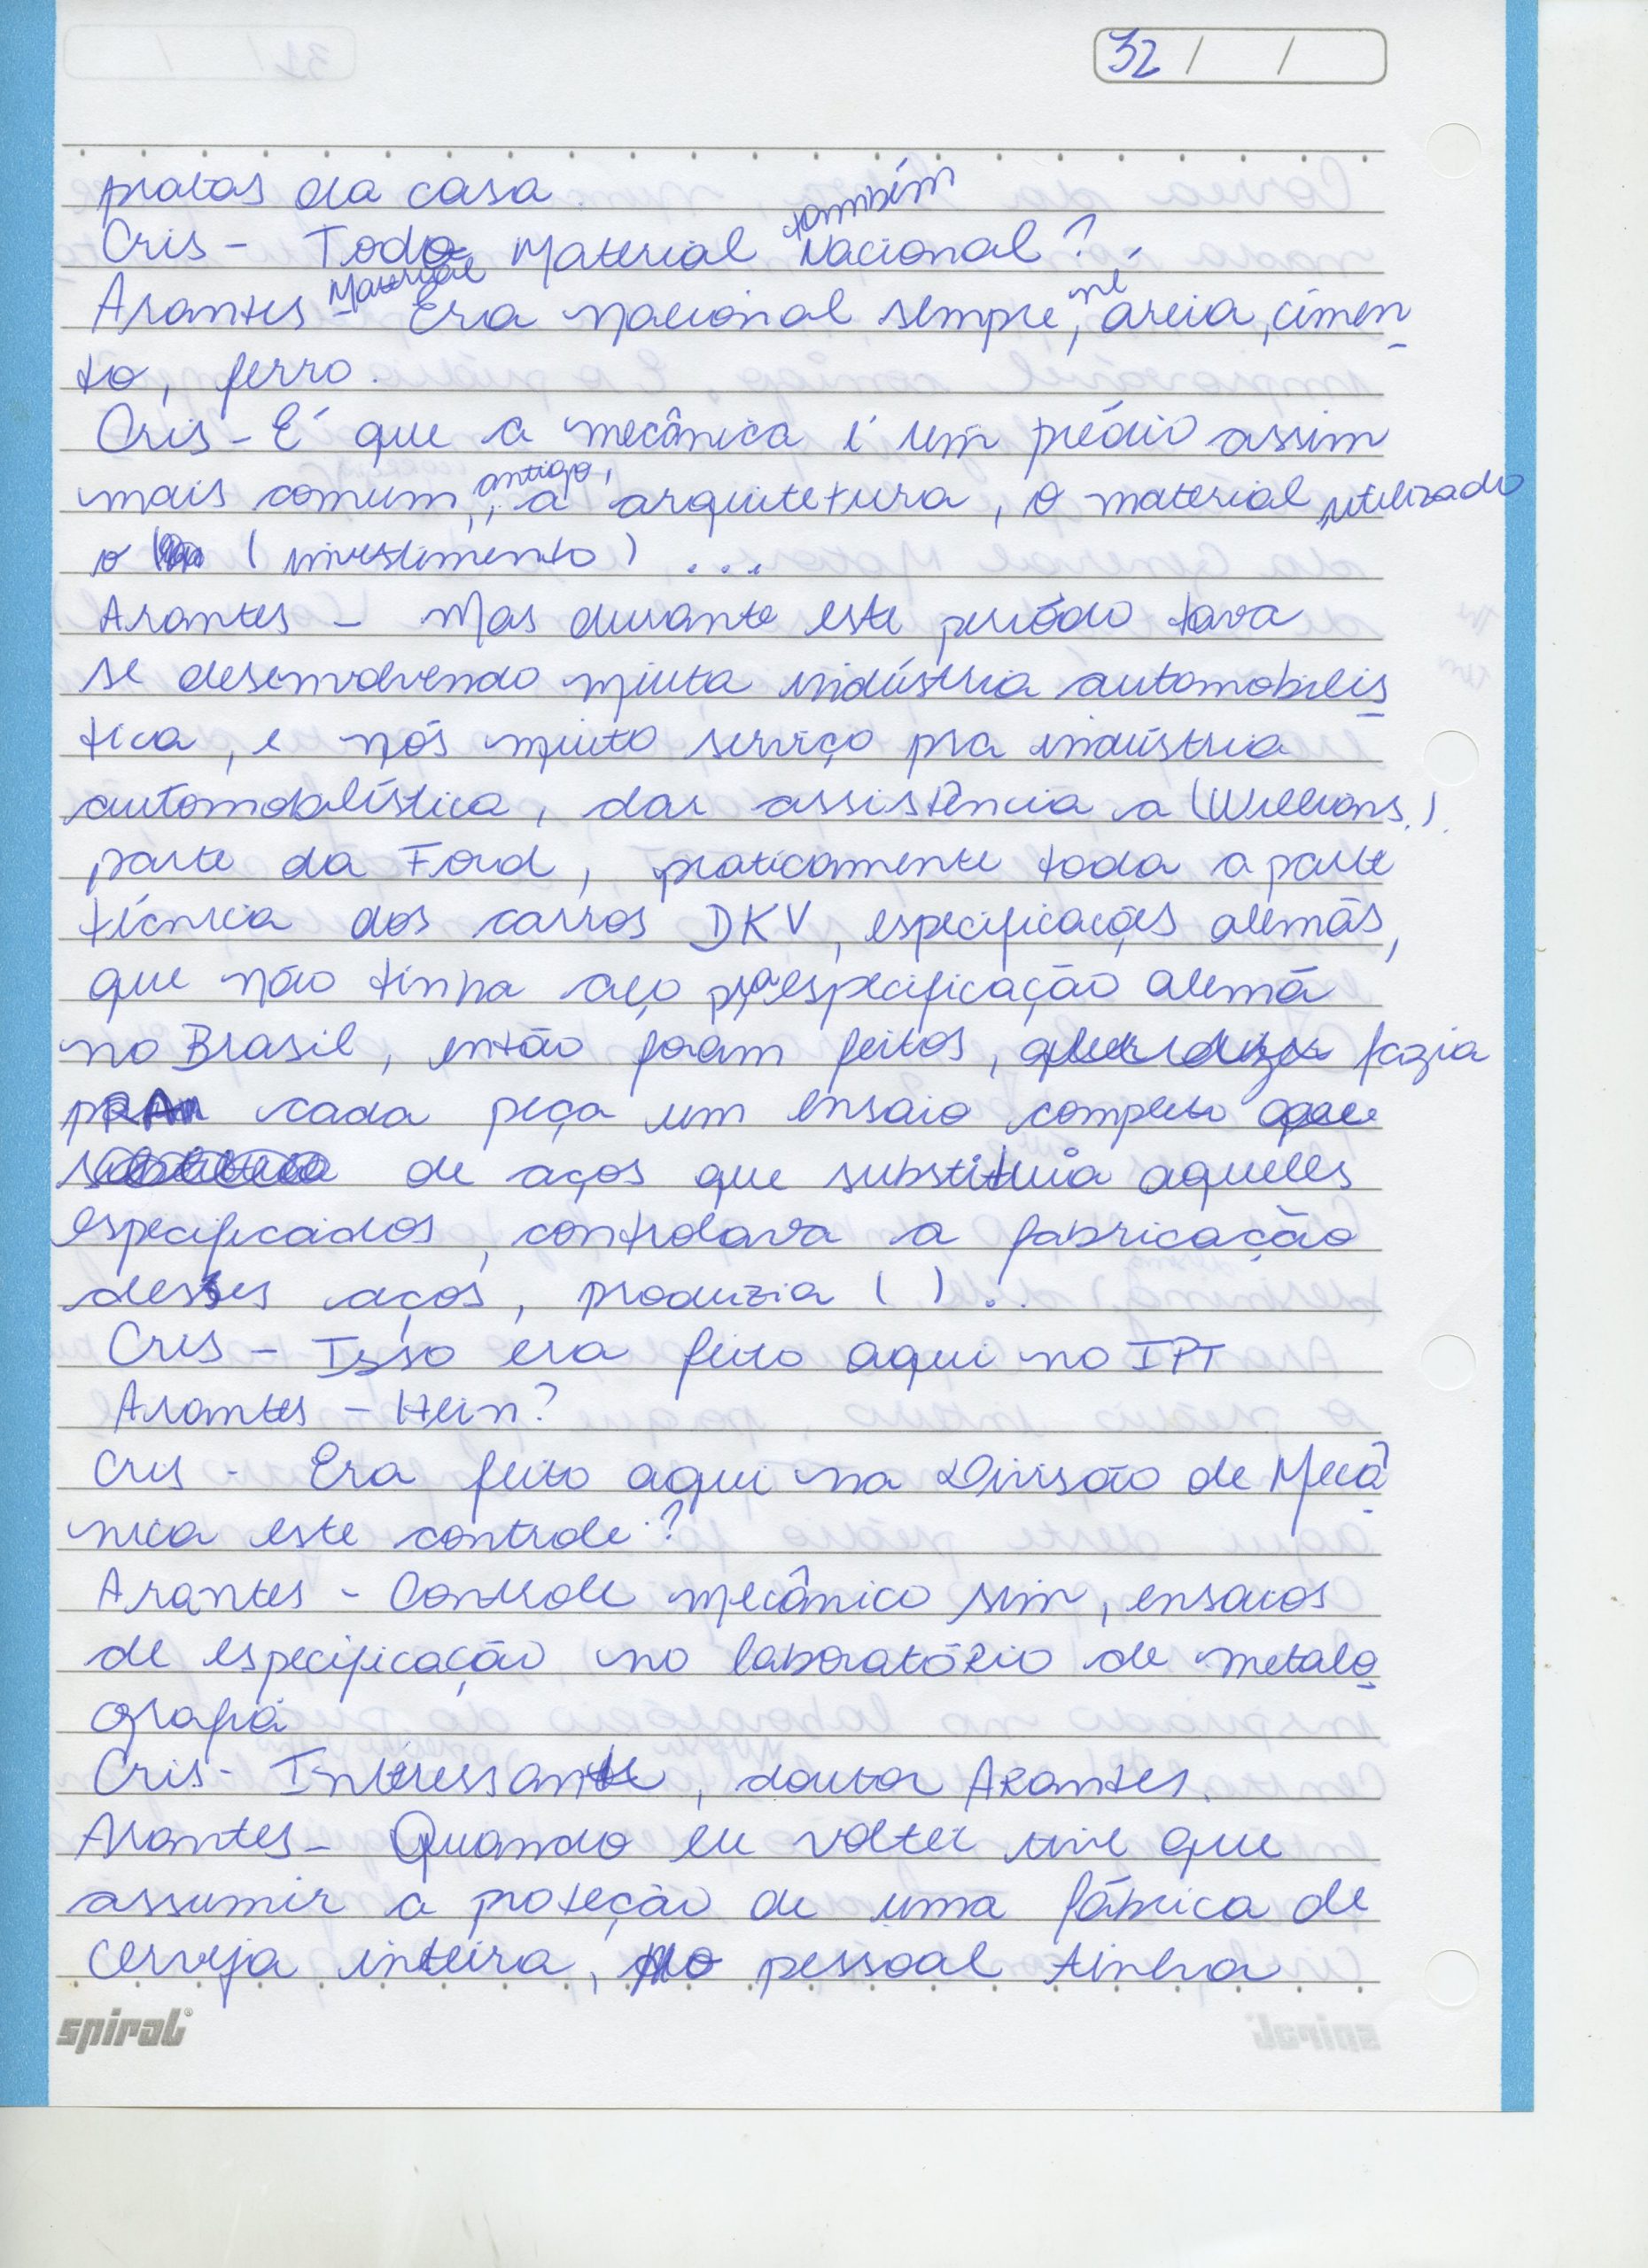 32 / /
pratas da casa.
Cris - Todo Material também Nacional?
Arantes - Material Era nacional sempre, né, areia, cimen
to, ferro.
Cris - É que a mecânica é um prédio assim
mais comum, antigo, a arquitetura, o material utilizado
o (investimento) ...
Arantes - Mas durante este período tava
se desenvolvendo muita indústria automobilis
tica, e nós muito serviço pra indústria
automobilística, dar assistência a (Willians)
parte da Ford, praticamente toda a parte
técnica dos carros DKV, especificações alemãs,
que não tinha aço pra especificação alemã
no Brasil, então foram feitos, quer dizer fazia
pRA cada peça um ensaio completo que
de aços que substituia aqueles
especificados, controlava a fabricação
desses aços, produzia ( )..
Cris - Isso era feito aqui no IPT
Arantes - Hein?
Cris - Era feito aqui na Divisão de Mecâ
nica este controle?
Arantes - Controle mecânico sim, ensaios
de especificação no laboratóRio de metalo
grafia
Cris - Interessante, doutor ARantes.
Arantes - Quando eu voltei tive que
assumir a proteção de uma fábrica de
cerveja inteira, o pessoal tinha
spiral®